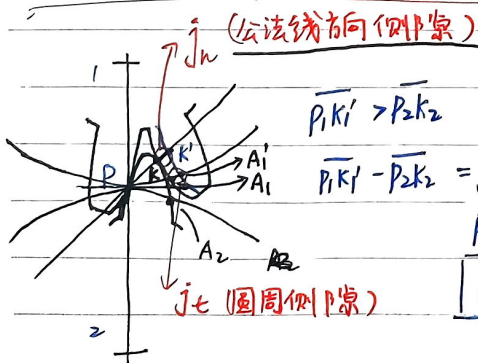 jn (公法线方向侧隙)
1
P1K1' > P2K2
P K K' A1'
P1K1' - P2K2 =
A1
A2
jt (圆周侧隙)
2